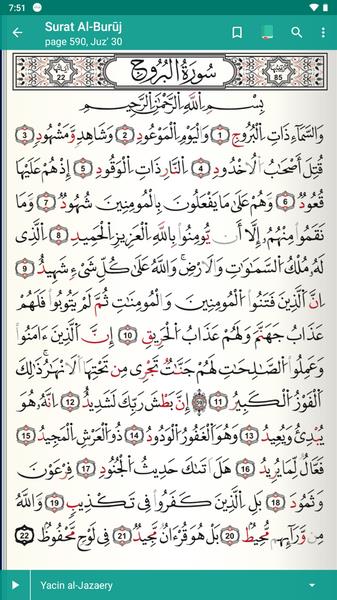 7:51
Surat Al-Burūj
page 590, Juz' 30
22
سُورَةُ الْبُرُوجِ
85
بِسْمِ اللَّهِ الرَّحْمَٰنِ الرَّحِيمِ
وَالسَّمَاءِ ذَاتِ الْبُرُوجِ 1 وَالْيَوْمِ الْمَوْعُودِ 2 وَشَاهِدٍ وَمَشْهُودٍ 3
قُتِلَ أَصْحَابُ الْأُخْدُودِ 4 النَّارِ ذَاتِ الْوَقُودِ 5 إِذْ هُمْ عَلَيْهَا
قُعُودٌ 6 وَهُمْ عَلَىٰ مَا يَفْعَلُونَ بِالْمُؤْمِنِينَ شُهُودٌ 7 وَمَا
نَقَمُوا مِنْهُمْ إِلَّا أَن يُؤْمِنُوا بِاللَّهِ الْعَزِيزِ الْحَمِيدِ 8 الَّذِي
لَهُ مُلْكُ السَّمَاوَاتِ وَالْأَرْضِ وَاللَّهُ عَلَىٰ كُلِّ شَيْءٍ شَهِيدٌ 9
إِنَّ الَّذِينَ فَتَنُوا الْمُؤْمِنِينَ وَالْمُؤْمِنَاتِ ثُمَّ لَمْ يَتُوبُوا فَلَهُمْ
عَذَابُ جَهَنَّمَ وَلَهُمْ عَذَابُ الْحَرِيقِ 10 إِنَّ الَّذِينَ ءَامَنُوا
وَعَمِلُوا الصَّالِحَاتِ لَهُمْ جَنَّاتٌ تَجْرِي مِن تَحْتِهَا الْأَنْهَارُ ذَٰلِكَ
الْفَوْزُ الْكَبِيرُ 11 إِنَّ بَطْشَ رَبِّكَ لَشَدِيدٌ 12 إِنَّهُ هُوَ
يُبْدِئُ وَيُعِيدُ 13 وَهُوَ الْغَفُورُ الْوَدُودُ 14 ذُو الْعَرْشِ الْمَجِيدُ 15
فَعَّالٌ لِّمَا يُرِيدُ 16 هَلْ أَتَاكَ حَدِيثُ الْجُنُودِ 17 فِرْعَوْنَ
وَثَمُودَ 18 بَلِ الَّذِينَ كَفَرُوا فِي تَكْذِيبٍ 19 وَاللَّهُ
مِن وَرَائِهِم مُّحِيطٌ 20 بَلْ هُوَ قُرْءَانٌ مَّجِيدٌ 21 فِي لَوْحٍ مَّحْفُوظٍ 22
Yacin al-Jazaery